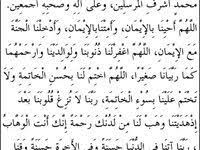 محمد أشرف المرسلين، وعلى آله وصحبه أجمعين.
اللَّهُمَّ أَحْيِنَا بِالْإِيمَانِ، وَأَمِتْنَا بِالْإِيمَانِ، وَأَدْخِلْنَا الْجَنَّةَ
مَعَ الْإِيمَانِ، اللَّهُمَّ اغْفِرْلَنَا ذُنُوبَنَا وَلِوَالِدِيْنَا وَارْحَمْهُمَا
كَمَا رَبَّيَانَا صَغِيْرًا، اللَّهُمَّ اخْتِمْ لَنَا بِحُسْنِ الْخَاتِمَةِ وَلَا
تَخْتِمْ عَلَيْنَا بِسُوْءِ الْخَاتِمَةِ، رَبَّنَا لَا تُزِغْ قُلُوْبَنَا بَعْدَ
إِذْهَدَيْتَنَا وَهَبْ لَنَا مِنْ لَدُنْكَ رَحْمَةً إِنَّكَ أَنْتَ الْوَهَّابُ
رَبَّنَا آتِنَا فِي الدُّنْيَا حَسَنَةً وَفِي الْآخِرَةِ حَسَنَةً وَقِنَا